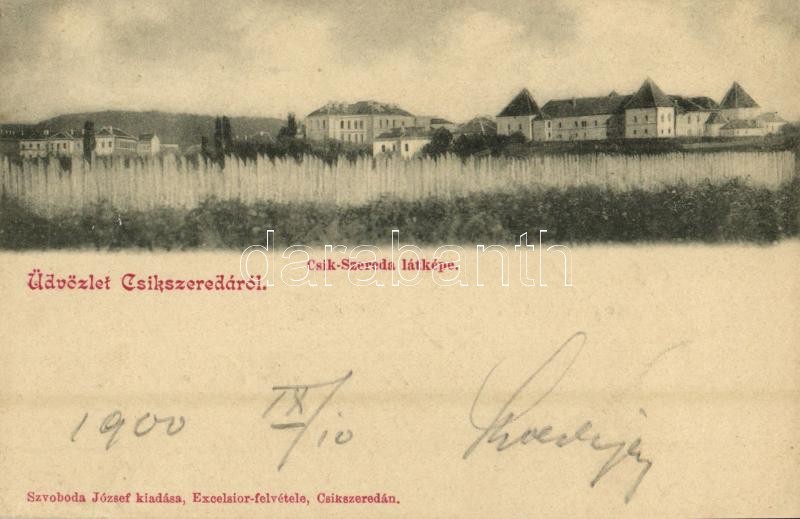 darabanth
Csik-Szereda látképe.
Üdvözlet Csikszeredáról.
1900 IX/10
Szvoboda József kiadása, Excelsior-felvétele, Csikszeredán.